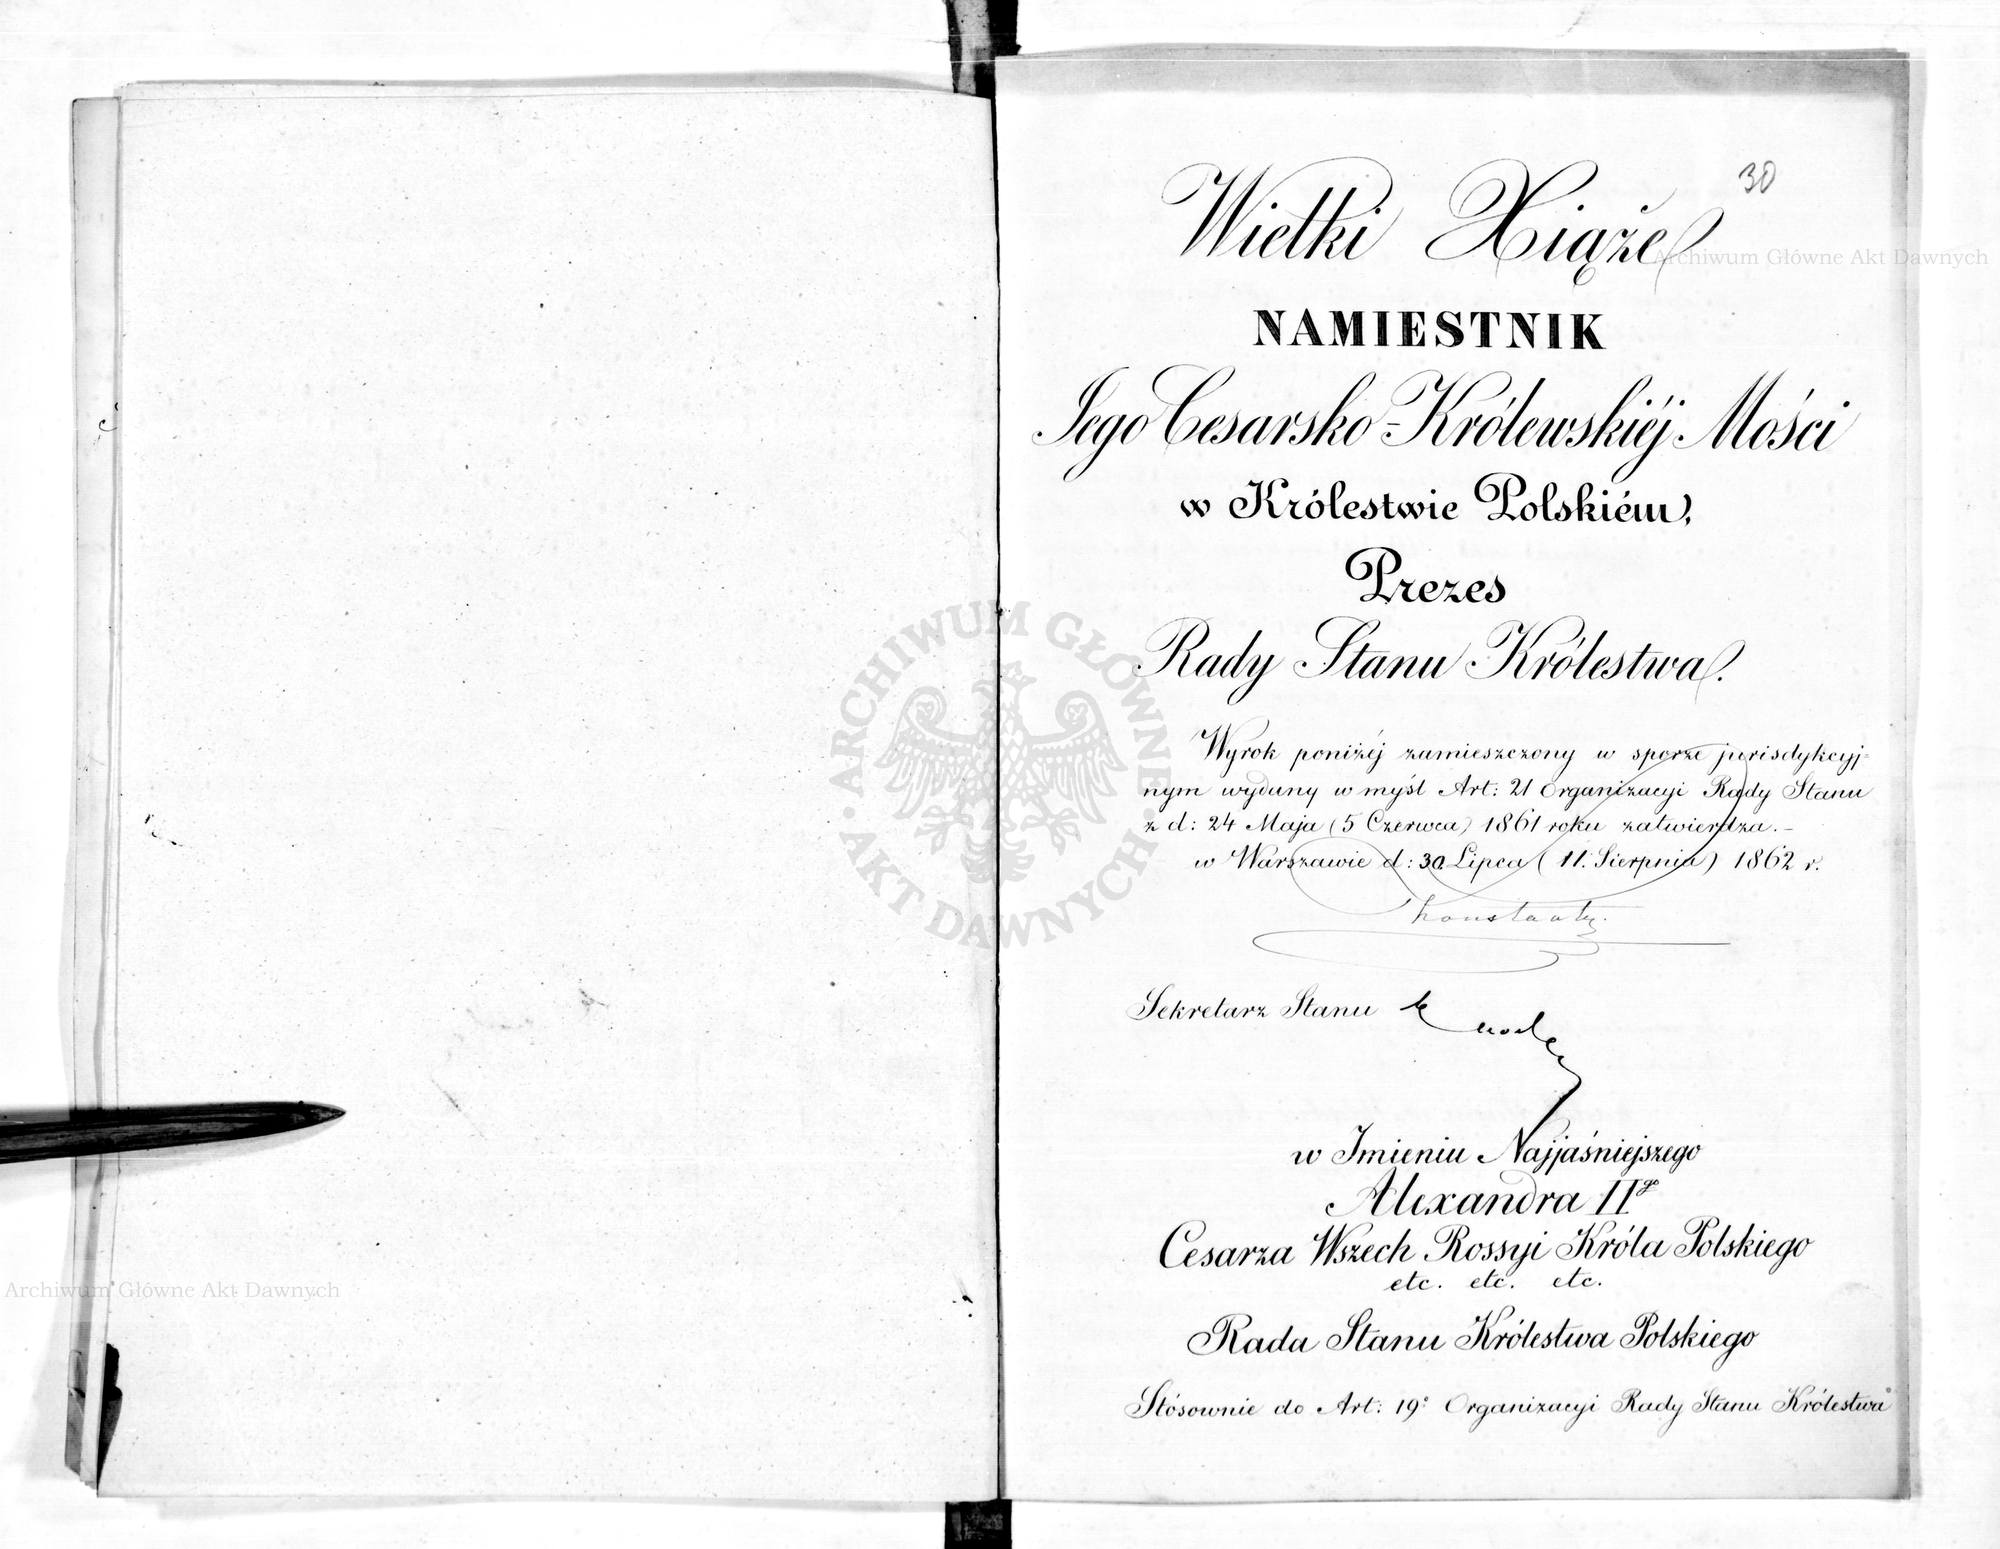 30
Wielki Xiąże
NAMIESTNIK
Jego Cesarsko-Królewskiéj Mości
w Królestwie Polskiém,
Prezes
Rady Stanu Królestwa.
Wyrok poniżéj zamieszczony w sporze jurisdykcyj=
nym wydany w myśl Art: 21 Organizacyi Rady Stanu
z d: 24 Maja (5 Czerwca) 1861 roku zatwierdza.-
w Warszawie d: 30 Lipca (11. Sierpnia) 1862 r.
Konstanty.
Sekretarz Stanu
w Imieniu Najjaśniejszego
Alexandra IIgo
Cesarza Wszech Rossyi Króla Polskiego
etc. etc. etc.
Rada Stanu Królestwa Polskiego
Stósownie do Art: 19º Organizacyi Rady Stanu Królestwa
Archiwum Główne Akt Dawnych
ARCHIWUM GŁÓWNE AKT DAWNYCH
Archiwum Główne Akt Dawnych